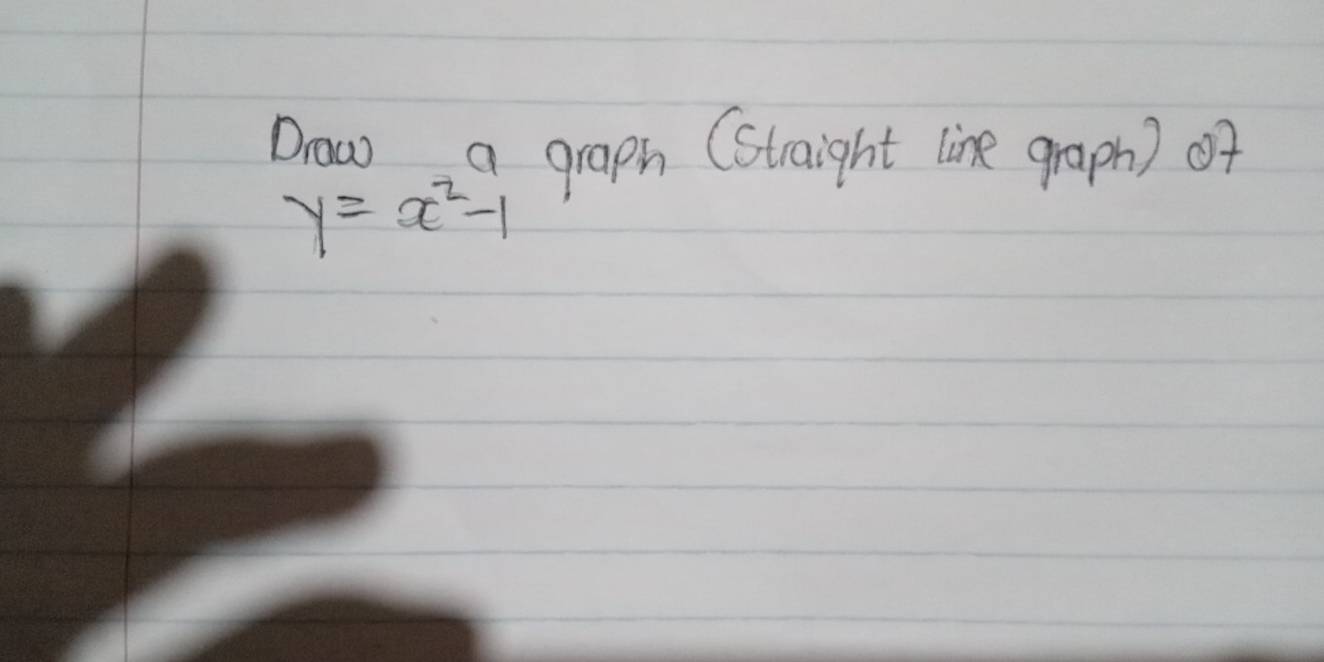 Draw a graph (Straight line graph) of
y = x² - 1